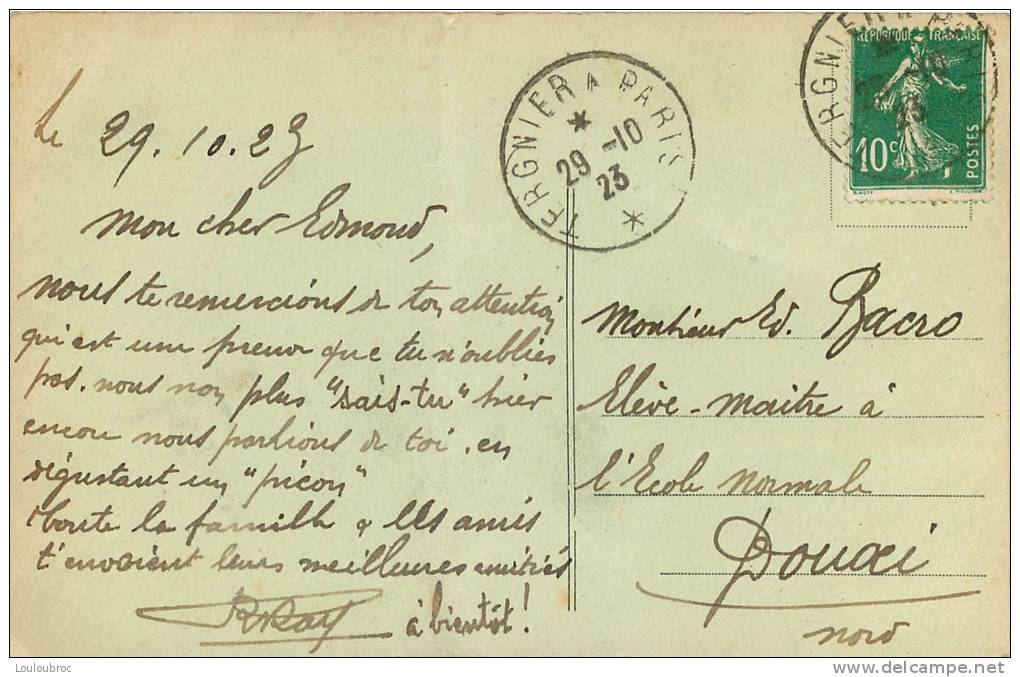 le 29.10.23
mon cher Edmond,
nous te remercions de ton attention
qui est une preuve que tu n'oublies
pas. nous non plus "sais-tu" hier
encore nous parlions de toi. en
dégustant un "picon"
toute la famille & les amis
t'envoient leurs meilleures amitiés
à bientôt !
TERGNIER A PARIS
29 -10
23
TERGNIER A PARIS
23
REPUBLIQUE FRANÇAISE
10c
POSTES
Monsieur Ed. Bacro
Elève-maitre à
l'Ecole normale
Douai
nord
Louloubroc
www.delcampe.net